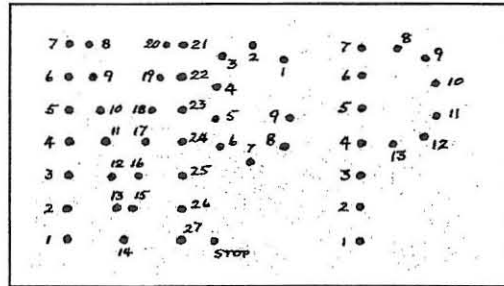 7 8 20 21 2 7 8
3 1 9
6 9 19 22 6 10
4
5 10 18 23 5 9 5 11
4 11 17 24 6 8 4 13 12
7
3 12 16 25 3
2 13 15 26 2
1 14 27 STOP 1